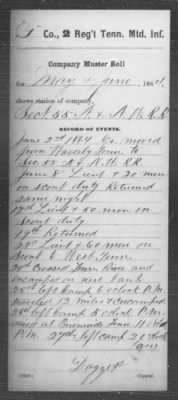 Co., 2 Reg't Tenn. Mtd. Inf.
Company Muster Roll
for May & June, 1864,
shows station of company,
Sect. 55 N. & N. W. R. R.
RECORD OF EVENTS.
June 2nd 1864 Co. moved
from Tenn to
Sec. 55 N. & N. W. RR.
June 8" Lieut & 20 men
on scout duty Returned
same night
17th Lieut & 50 men on
Scout duty
19th Returned
23" Lieut & 60 men on
Scout to West Tenn.
24" Crossed Tenn River and
encamped on west bank
25th left camp 6 o'clock P.M.
traveled 12 miles & Encamped
26" left camp 5 o'clock P.M.
at 11 o'clock
P.M. 27th left camp 2 o'clock
Daggett
Copyist.